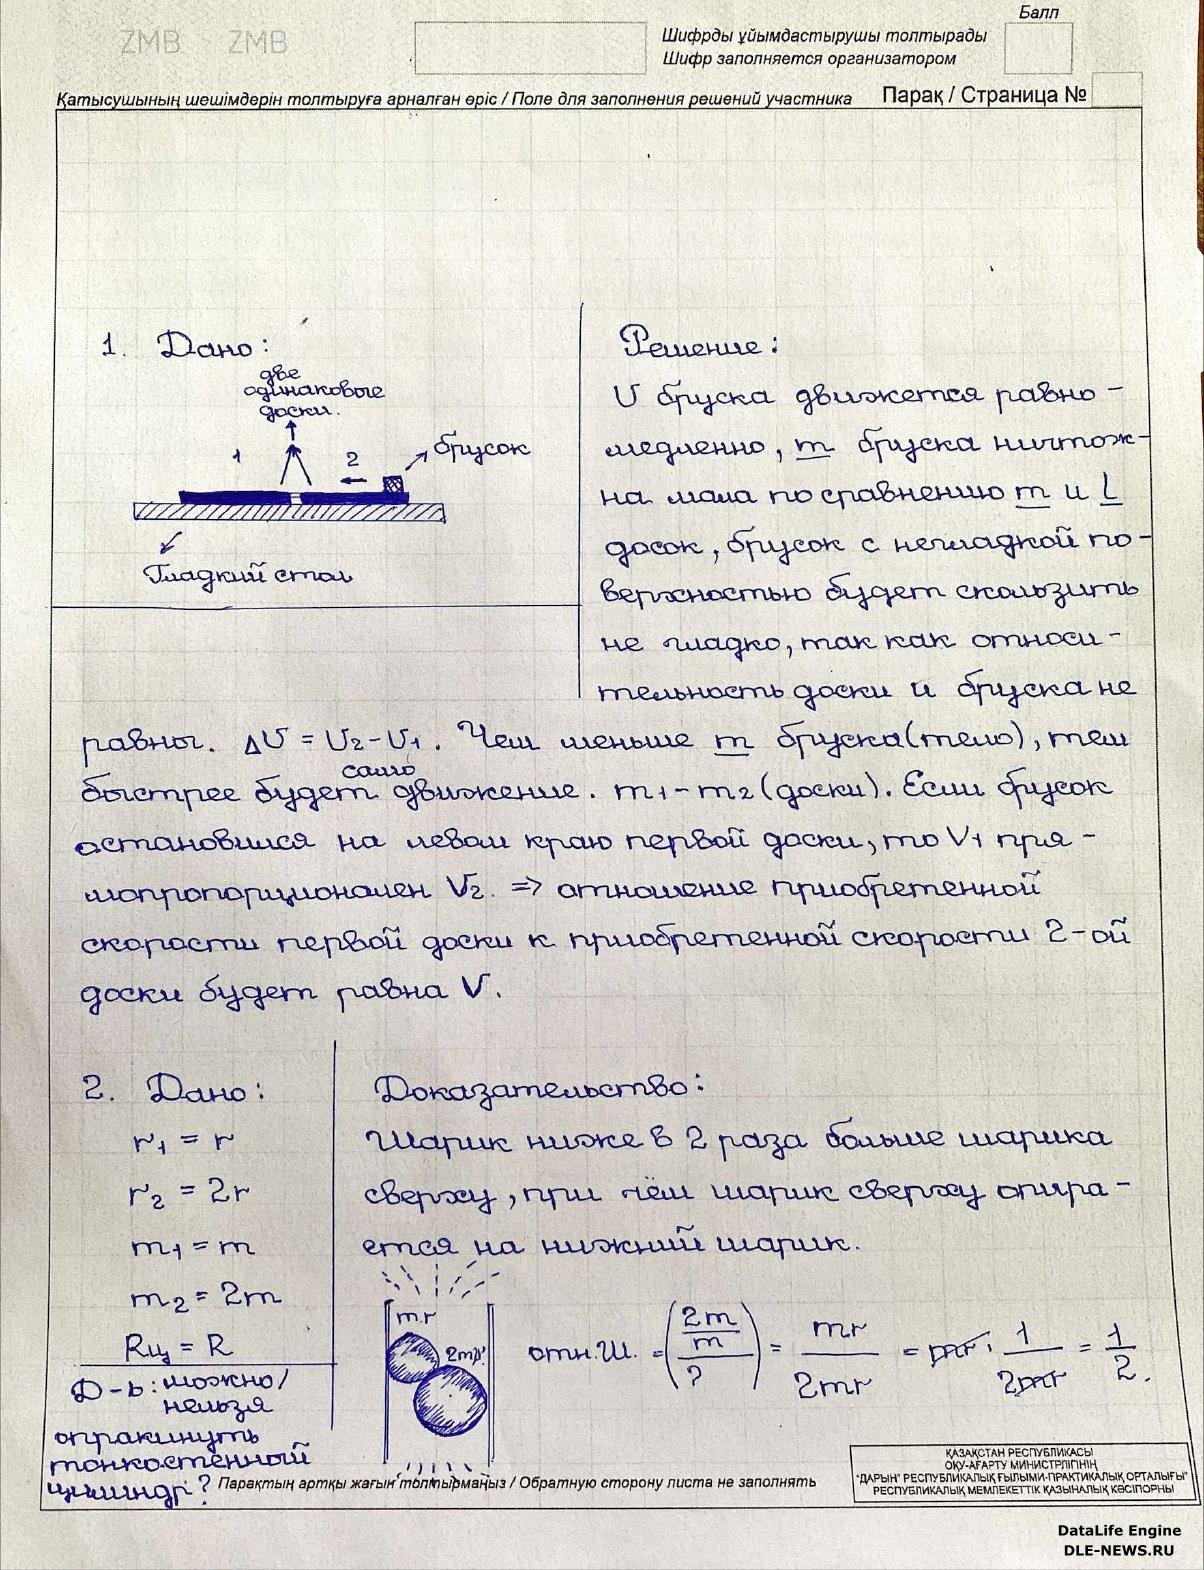 ZMB ZMB
Балл
Шифрды ұйымдастырушы толтырады
Шифр заполняется организатором
Қатысушының шешімдерін толтыруға арналған өріс / Поле для заполнения решений участника Парақ / Страница №
1. Дано:
две
одинаковые
доски.
1 2 брусок
Гладкий стол
Решение:
V бруска движется равно-
медленно, m бруска ничтож-
на мала по сравнению m и L
досок, брусок с негладкой по-
верхностью будет скользить
не гладко, так как относи-
тельность доски и бруска не
равны. ΔV = V2 - V1. Чем меньше m бруска (тело), тем
само
быстрее будет движение. m1 - m2 (доски). Если брусок
остановился на левом краю первой доски, то V1 пря-
мопропорционален V2. => отношение приобретенной
скорости первой доски к приобретенной скорости 2-ой
доски будет равна V.
2. Дано:
r1 = r
r2 = 2r
m1 = m
m2 = 2m
Rц = R
Д-ь: можно/
нельзя
опракинуть
тонкостенный
Доказательство:
Шарик ниже в 2 раза больше шарика
сверху, при чём шарик сверху опира-
ется на нижний шарик.
m.r
отн.Ш. = (2m/m / 2) = mr/2mr = mr · 1/2mr = 1/2.
Парақтың артқы жағын толтырмаңыз / Обратную сторону листа не заполнять
ҚАЗАҚСТАН РЕСПУБЛИКАСЫ
ОҚУ-АҒАРТУ МИНИСТРЛІГІНІҢ
"ДАРЫН" РЕСПУБЛИКАЛЫҚ ҒЫЛЫМИ-ПРАКТИКАЛЫҚ ОРТАЛЫҒЫ"
РЕСПУБЛИКАЛЫҚ МЕМЛЕКЕТТІК ҚАЗЫНАЛЫҚ КӘСІПОРНЫ
DataLife Engine
DLE-NEWS.RU